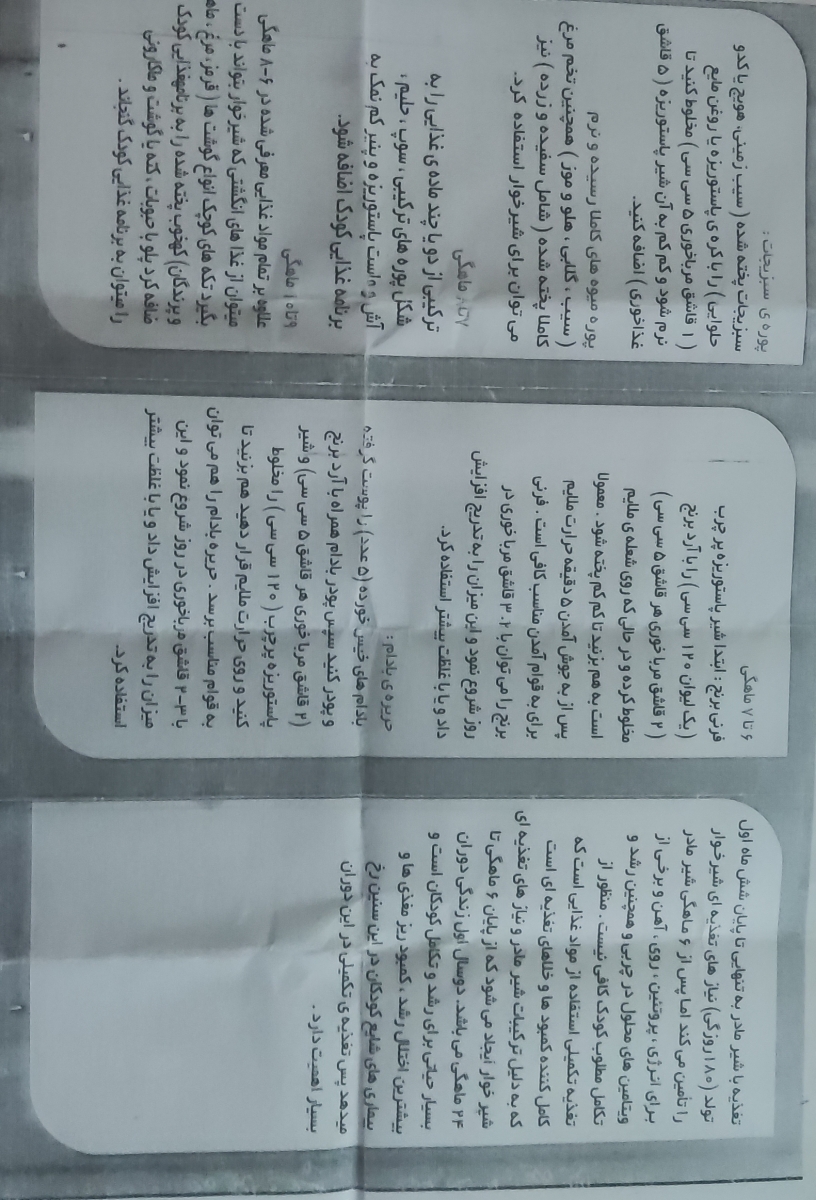 تغذیه با شیر مادر به تنهایی تا پایان شش ماه اول
تولد (۱۸۰ روزگی) نیاز های تغذیه ای شیرخوار
را تأمین می کند اما پس از ۶ ماهگی شیر مادر
برای انرژی، پروتئین، روی، آهن و برخی از
ویتامین های محلول در چربی و همچنین رشد و
تکامل مطلوب کودک کافی نیست. منظور از
تغذیه تکمیلی استفاده از مواد غذایی است که
کامل کننده کمبود ها و خللهای تغذیه ای است
که به دلیل ترکیبات شیر مادر و نیاز های تغذیه ای
شیر خوار ایجاد می شود که از پایان ۶ ماهگی تا
۲۴ ماهگی می باشد. دوسال اول زندگی دوران
بسیار حیاتی برای رشد و تکامل کودکان است و
بیشترین اختلال رشد، کمبود ریز مغذی ها و
بیماری های شایع کودکان در این سنین رخ
میدهد پس تغذیه ی تکمیلی در این دوران
بسیار اهمیت دارد.
۶ تا ۷ ماهگی
فرنی برنج: ابتدا شیر پاستوریزه پر چرب
(یک لیوان ۱۲۰ سی سی) را با آرد برنج
(۲ قاشق مربا خوری هر قاشق ۵ سی سی)
مخلوط کرده و در حالی که روی شعله ی ملایم
است به هم بزنید تا کم کم پخته شود. معمولا
پس از به جوش آمدن ۵ دقیقه حرارت ملایم
برای به قوام آمدن مناسب کافی است. فرنی
برنج را می توان با ۲-۳ قاشق مربا خوری در
روز شروع نمود و این میزان را به تدریج افزایش
داد و یا با غلظت بیشتر استفاده کرد.
حریره ی بادام:
بادام های خیس خورده (۵ عدد) را پوست گرفته
و پودر کنید سپس پودر بادام همراه با آرد برنج
(۲ قاشق مربا خوری هر قاشق ۵ سی سی) و شیر
پاستوریزه پرچرب (۱۲۰ سی سی) را مخلوط
کنید و روی حرارت ملایم قرار دهید هم بزنید تا
به قوام مناسب برسد. حریره بادام را هم می توان
با ۳-۲ قاشق مرباخوری در روز شروع نمود و این
میزان را به تدریج افزایش داد و یا با غلظت بیشتر
استفاده کرد.
پوره ی سبزیجات:
سبزیجات پخته شده (سیب زمینی، هویج یا کدو
حلوایی) را با کره ی پاستوریزه یا روغن مایع
(۱ قاشق مرباخوری ۵ سی سی) مخلوط کنید تا
نرم شود و کم کم به آن شیر پاستوریزه (۵ قاشق
غذاخوری) اضافه کنید.
پوره میوه های کاملا رسیده و نرم
(سیب، گلابی، هلو و موز) همچنین تخم مرغ
کاملا پخته شده (شامل سفیده و زرده) نیز
می توان برای شیرخوار استفاده کرد.
۷ تا ۸ ماهگی
ترکیبی از دو یا چند ماده ی غذایی را به
شکل پوره های ترکیبی، سوپ، حلیم،
آش و ماست پاستوریزه و پنیر کم نمک به
برنامه غذایی کودک اضافه شود.
۹ تا ۱۰ ماهگی
علاوه بر تمام مواد غذایی معرفی شده در ۶-۸ ماهگی
میتوان از غذا های انگشتی که شیرخوار بتواند با دست
بگیرد تکه های کوچک انواع گوشت ها (قرمز، مرغ،
و پرندگان) که خوب پخته شده را به برنامه غذایی کودک
اضافه کرد پلو با حبوبات، کته با گوشت و ماکارونی
را میتوان به برنامه غذایی کودک گنجاند.